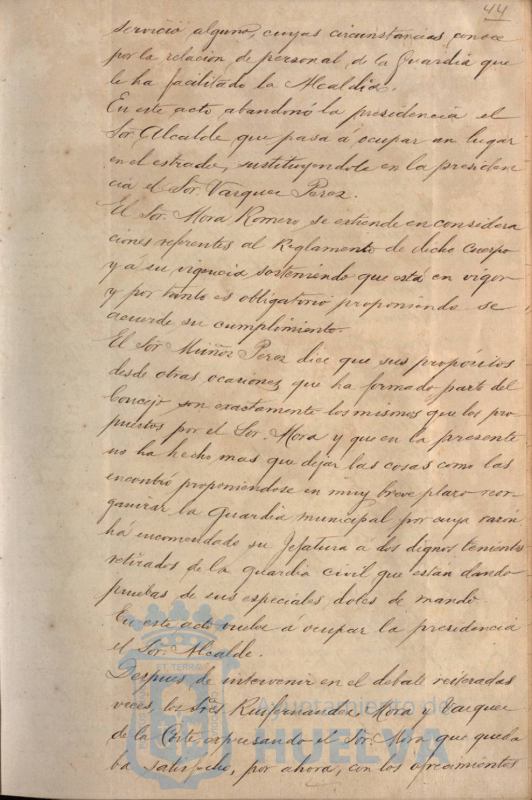 44
servicio alguno, cuyas circunstancias conoce
por la relacion de personal de la Guardia que
le ha facilitado la Alcaldia.
En este acto abandonó la presidencia el
Sor. Alcalde que pasa á ocupar un lugar
en el estrado, sustituyendole en la presiden
cia el Sor. Vazquez Perez.
El Sor. Mora Romero se estiende en considera
ciones referentes al Reglamento de dicho Cuerpo
y á su urgencia sosteniendo que está en vigor
y por tanto es obligatorio proponiendo se
acuerde su cumplimiento.
El Sor Muñoz Perez dice que sus propósitos
desde otras ocasiones que ha formado parte del
Concejo son exactamente los mismos que los pro
puestos por el Sor. Mora y que en la presente
no ha hecho mas que dejar las cosas como las
encontró proponiendose en muy breve plazo reor
ganizar la Guardia municipal por cuya razón
há encomendado su Jefatura á los dignos tenientes
retirados de la guardia civil que están dando
pruebas de sus especiales dotes de mando.
En este acto vuelve á ocupar la presidencia
el Sor. Alcalde.
Despues de intervenir en el debate reiteradas
veces, los Sres Ruifernandez, Mora y Vazquez
de la Corte, expresando el Sor. Mora que queda
ba satisfecho, por ahora, con los ofrecimientos
Ayuntamiento de
HUELVA